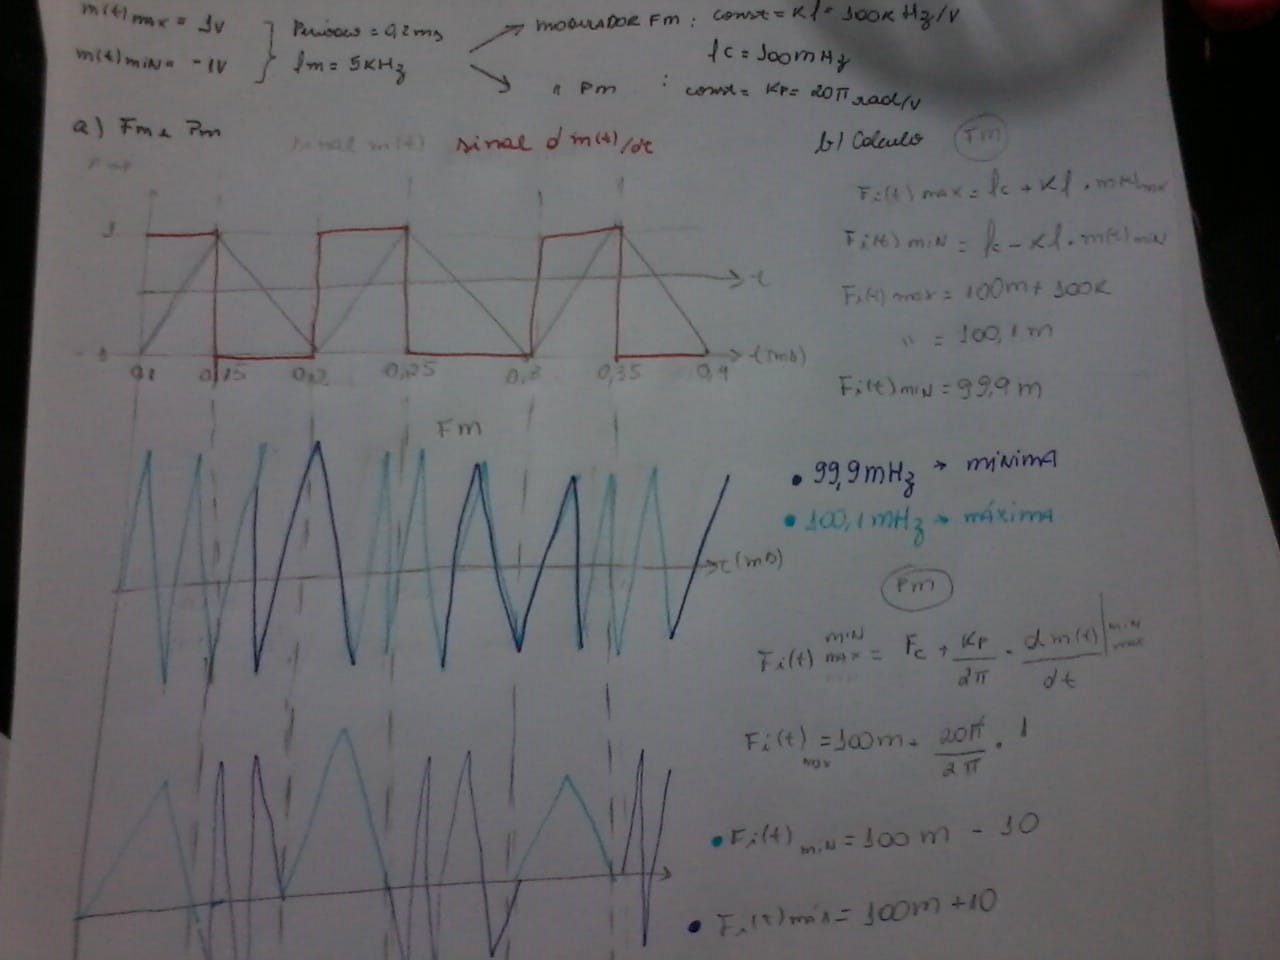 m(t) max = 1V
m(t) min = -1V
Período = 0,2ms
fm = 5KHz
MODULADOR Fm : const = Kf = 100K Hz/V
fc = 100mHz
" Pm : const = Kp = 20π rad/V
a) Fm e Pm
sinal m(t) sinal d m(t)/dt
1
t
t(ms)
0,1 0,15 0,2 0,25 0,3 0,35 0,4
Fm
t(ms)
b) Calculo Fm
Fi(t) max = fc + Kf . m(t) max
Fi(t) min = fc - Kf . m(t) min
Fi(t) max = 100m + 100K
" = 100,1m
Fi(t) min = 99,9m
• 99,9mHz → mínima
• 100,1mHz → máxima
Pm
Fi(t) min max = Fc + Kp/2π . d m(t)/dt | min max
Fi(t) max = 100m + 20π/2π . 1
• Fi(t) min = 100m - 10
• Fi(t) máx = 100m + 10